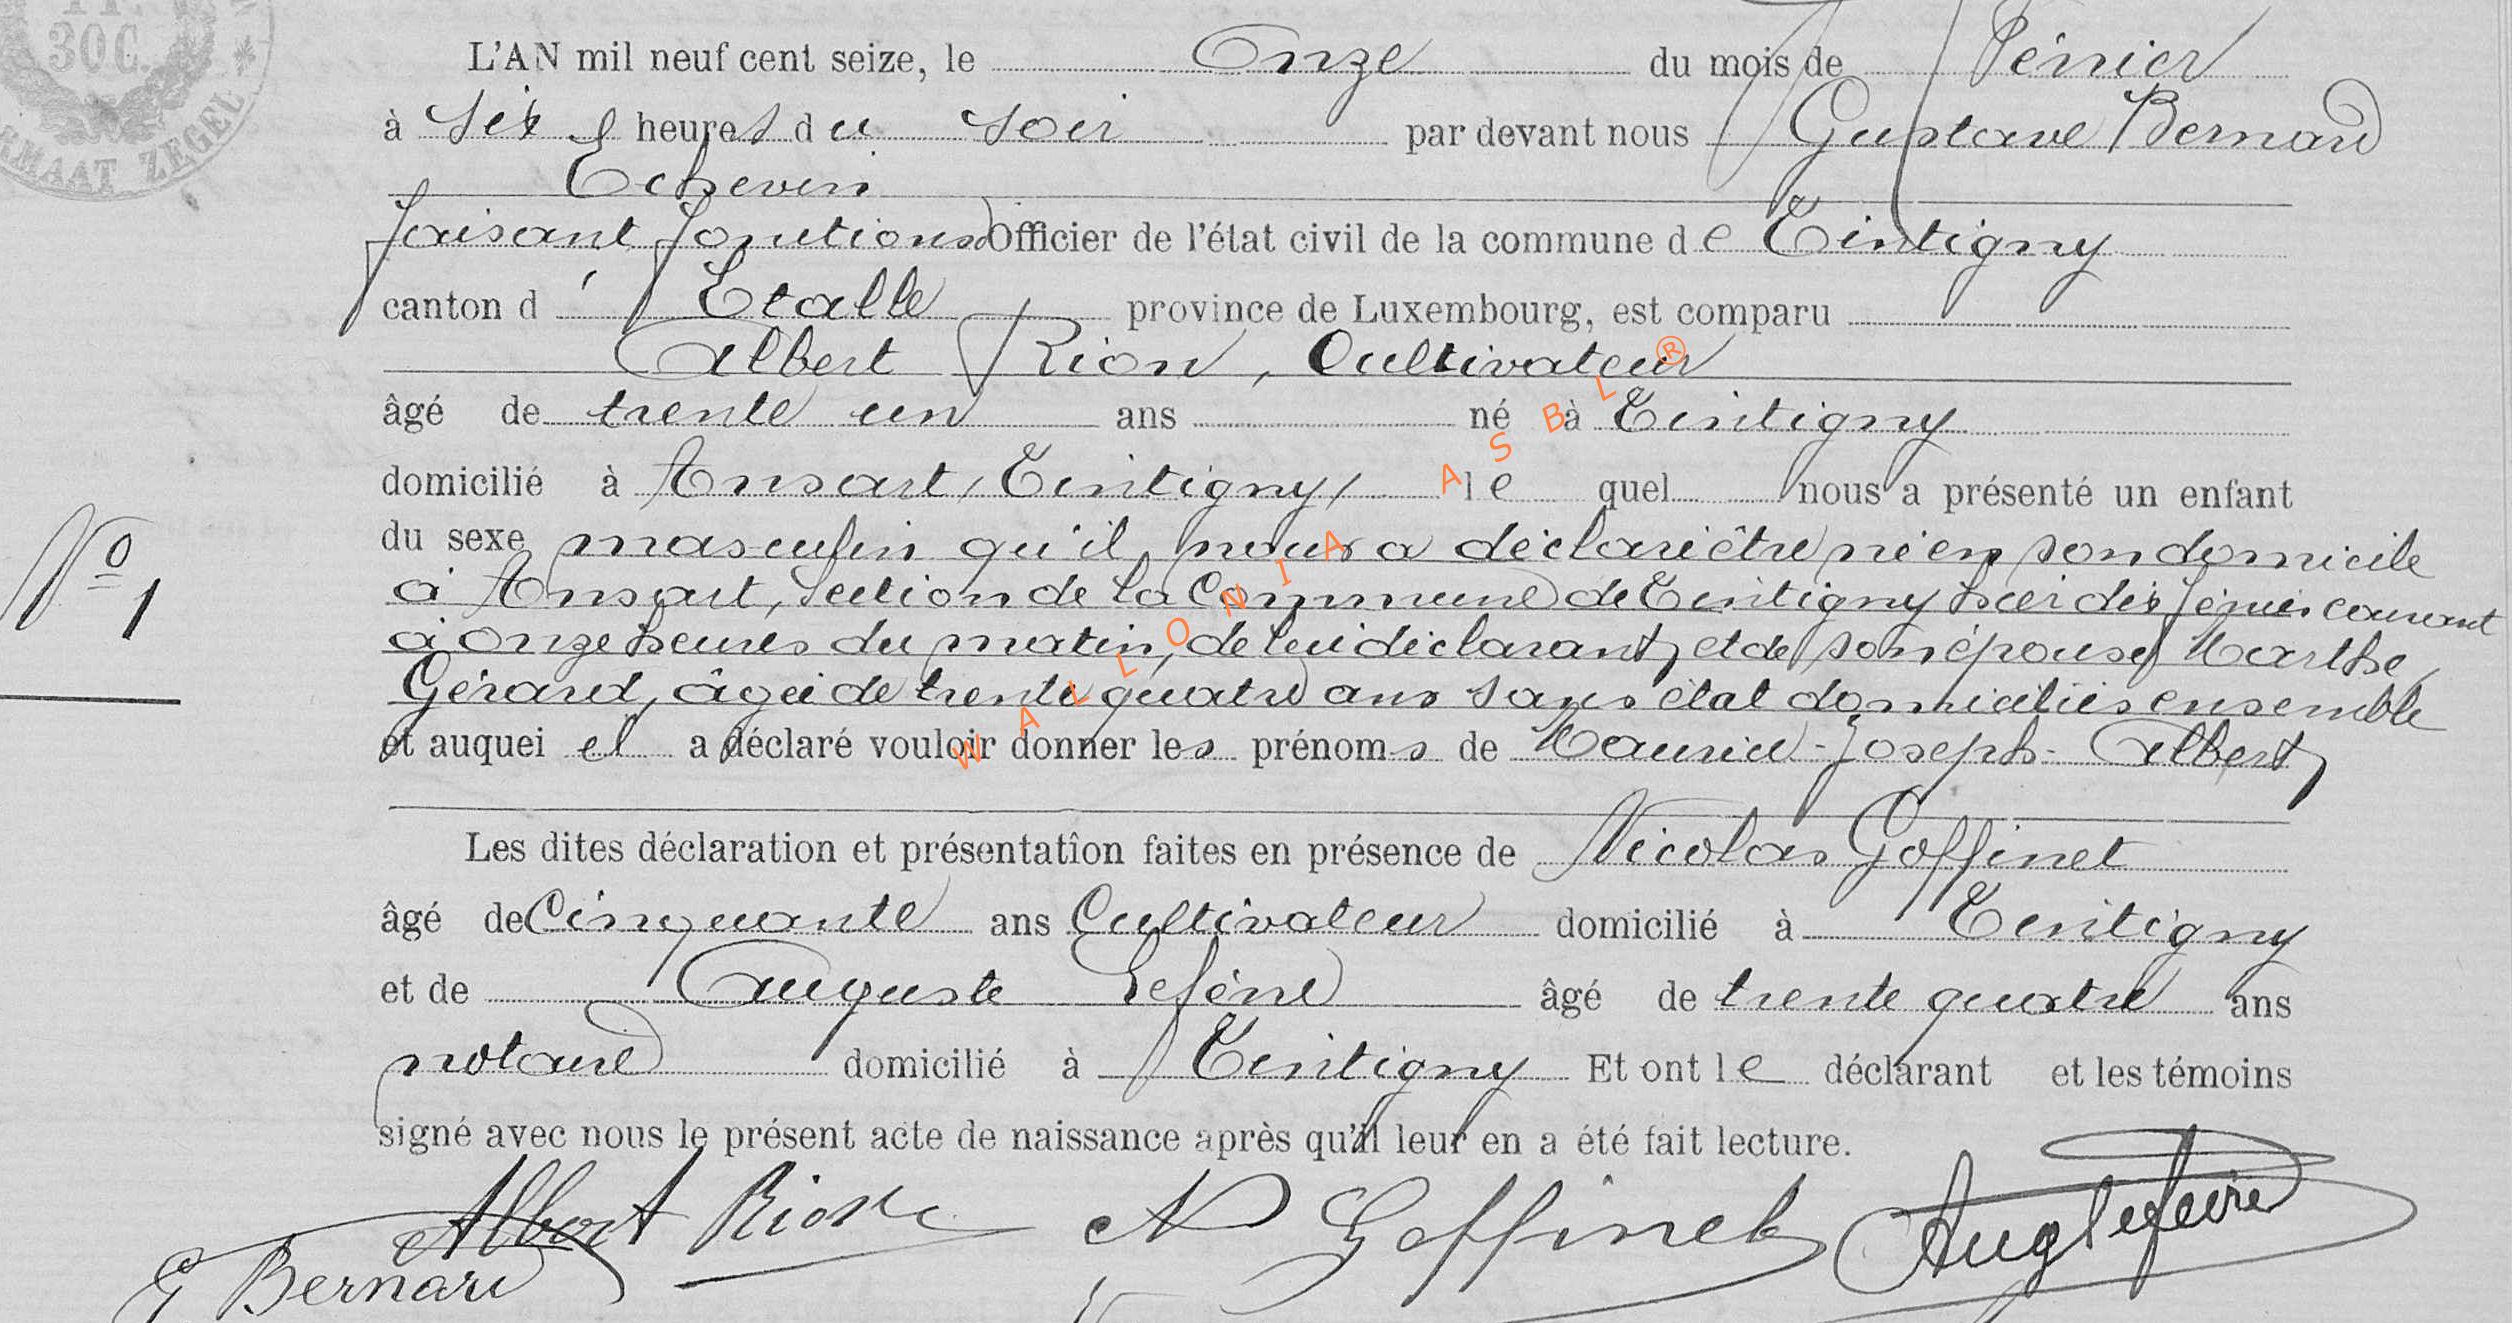 30C.
RMAAT ZEGEL
L'AN mil neuf cent seize, le Onze du mois de Février
à six heures du soir par devant nous Gustave Bernard
Echevin
faisant fonctions Officier de l'état civil de la commune de Tintigny
canton d' Etalle province de Luxembourg, est comparu
Albert Rion, Cultivateur
âgé de trente un ans né à Tintigny
domicilié à Ansart, Tintigny, lequel nous a présenté un enfant
du sexe masculin qu'il nous a déclaré être né en son domicile
à Ansart, Section de la Commune de Tintigny hier dix février courant
à onze heures du matin, de lui déclarant, et de son épouse Marthe
Gérard, âgée de trente quatre ans sans état domiciliés ensemble
et auquel il a déclaré vouloir donner les prénoms de Maurice-Joseph-Albert,
Nº 1
Les dites déclaration et présentation faites en présence de Nicolas Goffinet
âgé de Cinquante ans Cultivateur domicilié à Tintigny
et de Auguste Lefèvre âgé de trente quatre ans
notaire domicilié à Tintigny Et ont le déclarant et les témoins
signé avec nous le présent acte de naissance après qu'il leur en a été fait lecture.
Albert Rion N Goffinet Aug Lefèvre
G Bernard
WALLONIA ASBL ®